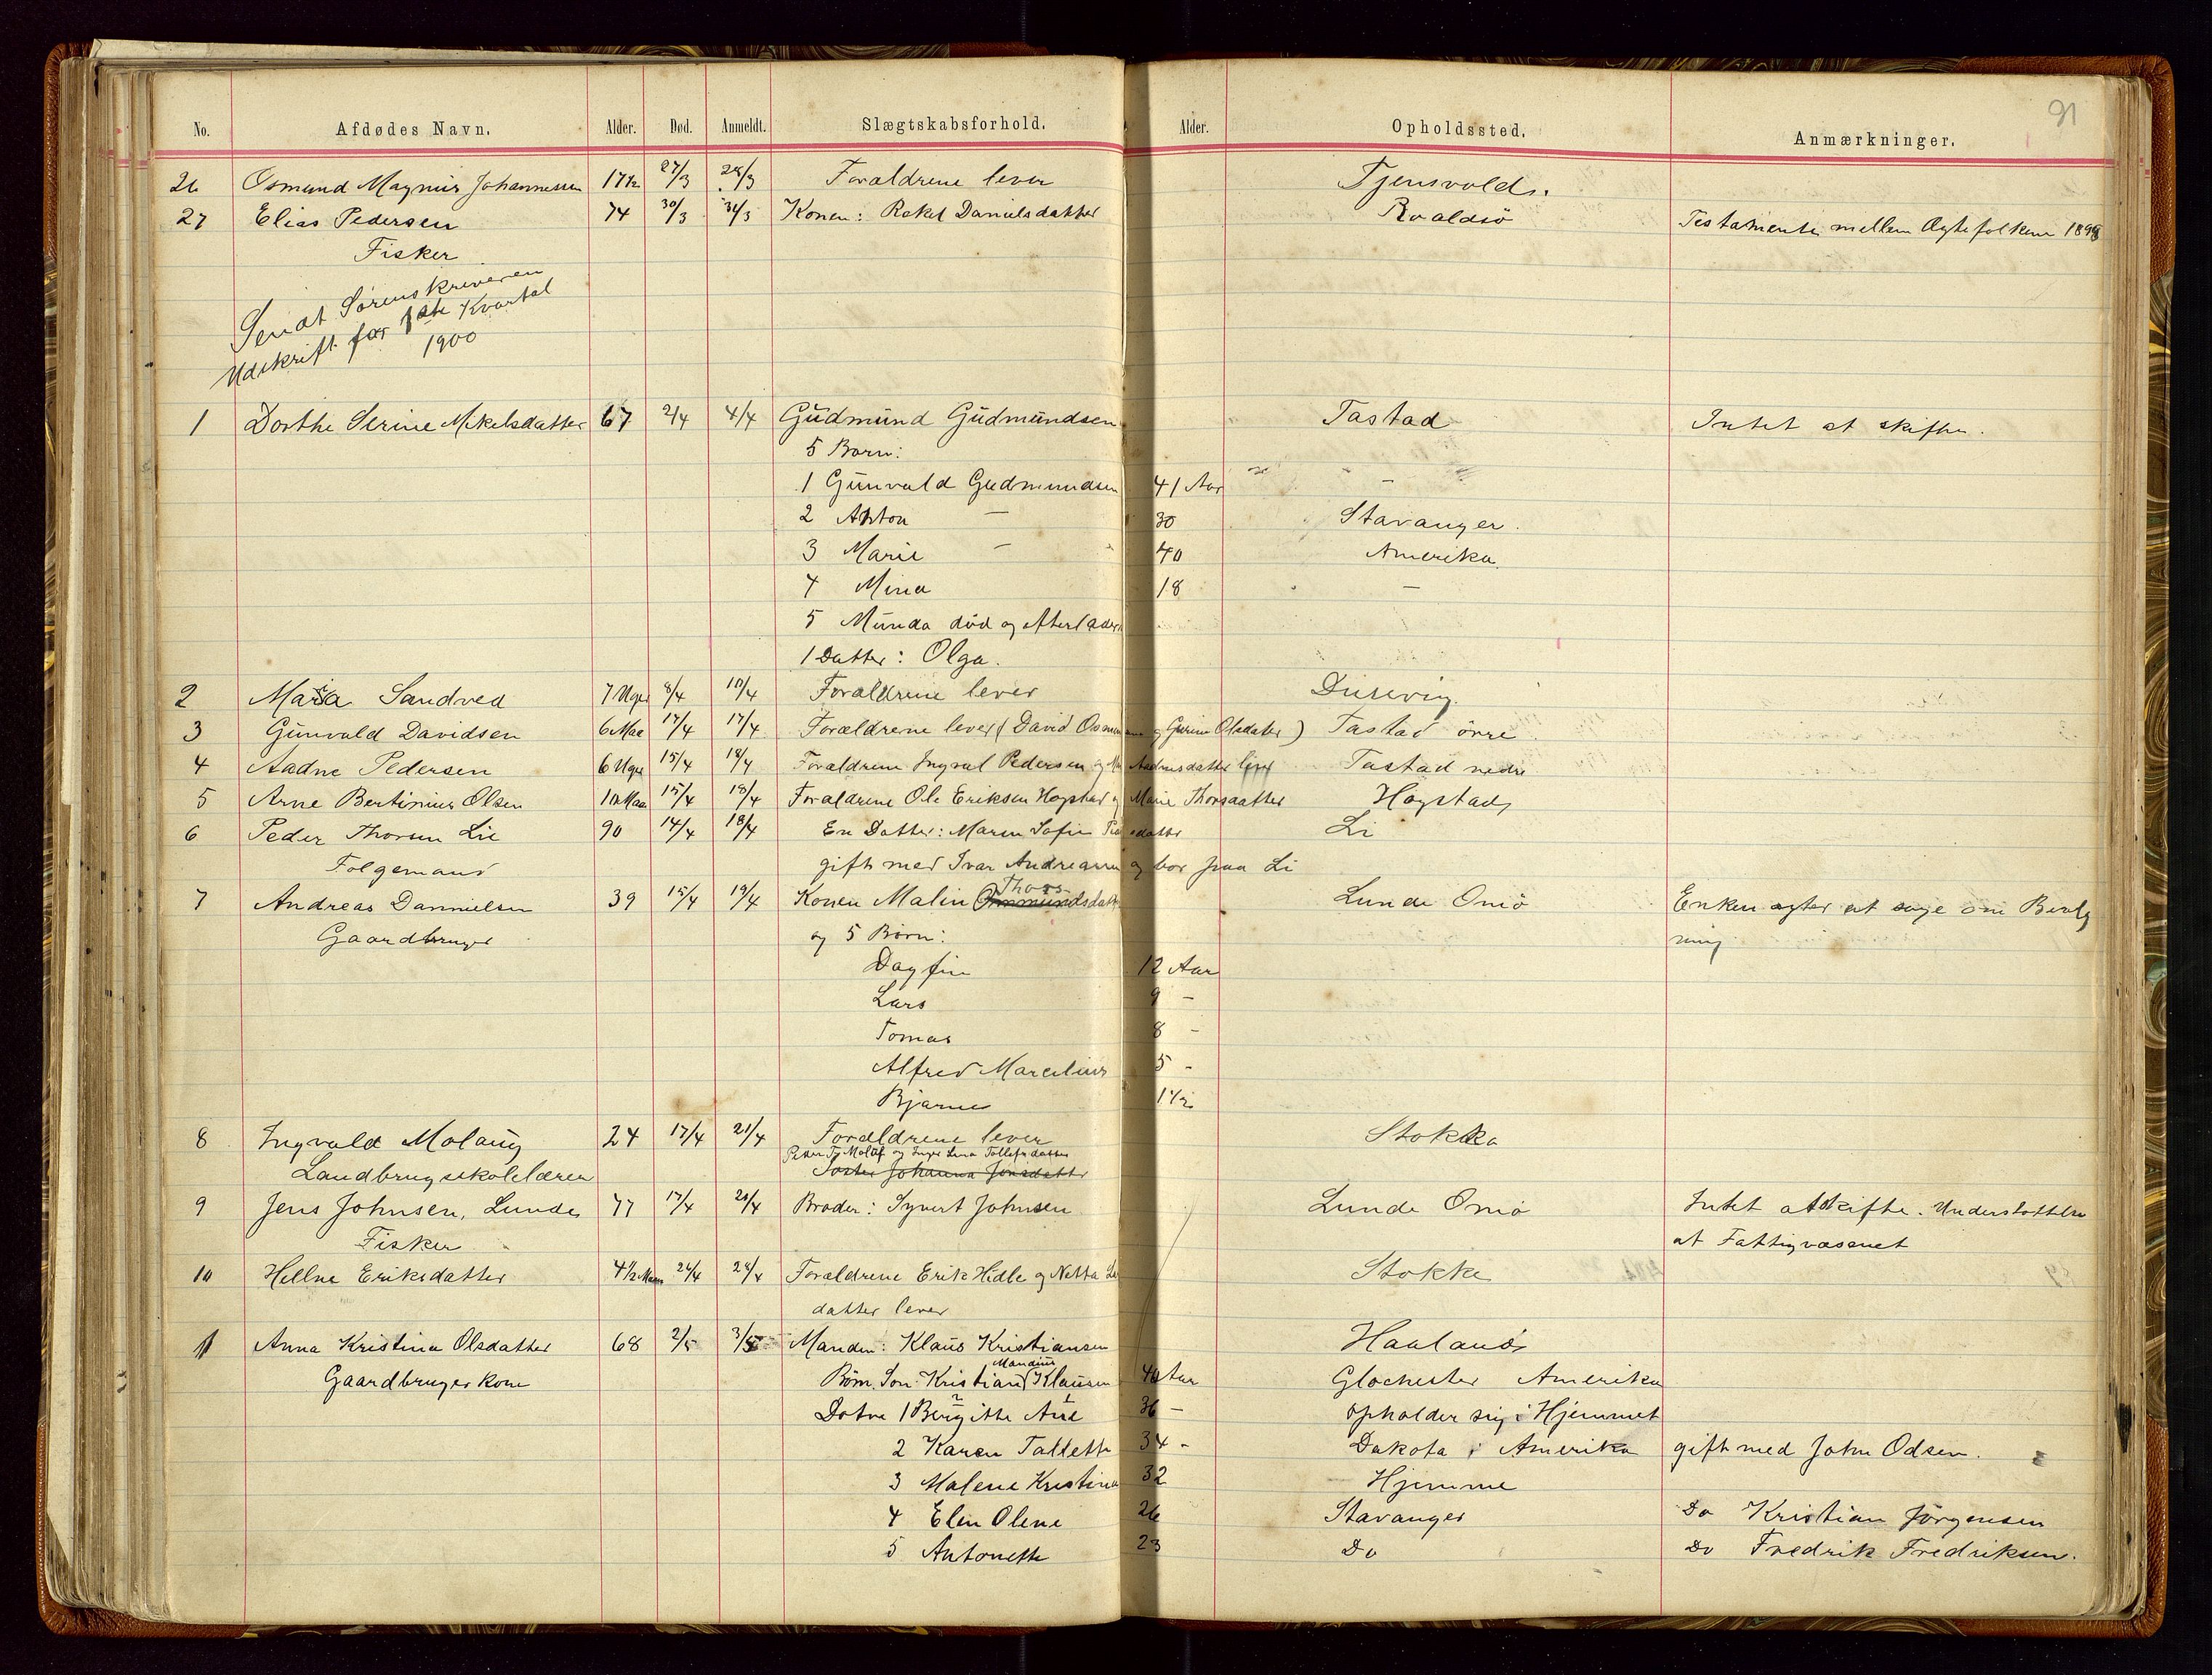 91
No. Afdødes Navn. Alder. Død. Anmeldt. Slægtskabsforhold. Alder. Opholdssted. Anmærkninger.
26 Osmund Magnus Johannessen 17½ 27/3 28/3 Forældrene lever Tjensvold
27 Elias Pedersen 74 30/3 31/3 Konen: Rakel Danielsdatter Roaldsö Testamente mellem Ægtefolkene 1898
Fisker
Sendt Sorenskriveren
Udskrift for 1ste Kvartal
1900
1 Dorthe Serine Mikelsdatter 67 2/4 4/4 Gudmund Gudmundsen Tastad Intet at skifte.
5 Børn:
1 Gunvald Gudmundsen 41 Aar -
2 Anton - 30 Stavanger.
3 Marie - 40 Amerika
4 Mina 18 -
5 Munda död og efterlader
1 Datter: Olga.
2 Maria Sandved 7 Uger 8/4 10/4 Forældrene lever Dusevig
3 Gunvald Davidsen 6 Maa 17/4 17/4 Forældrene lever (David og Gurine Olsdatter) Tastad övre
4 Aadne Pedersen 6 Uger 15/4 18/4 Forældrene Ingval Pedersen og Aadnesdatter lever Tastad nedre
5 Arne Bertinius Olsen 10 Maa 15/4 18/4 Forældrene Ole Eriksen Hogstad og Marie Thorsdatter Hogstad
6 Peder Thorsen Lie 90 14/4 18/4 En Datter: Maren Sofie datter Li
Folgemand gift med Ivar og bor paa Li
7 Andreas Dannielsen 39 15/4 19/4 Konen Malin Thors Ommundsdatter Lunde Omö Enken agter at søge om Bevilg
Gaardbruger og 5 Børn: ning
Dagfin 12 Aar
Lars 9 -
Tomas 8 -
Alfred Marcelius 5 -
Bjarne 1½
8 Ingvald Molaug 24 17/4 21/4 Forældrene lever Stokka
Peder Tj Molaf og Inger Lena Tollefsdatter
Landbrugsskolelærer Søster Johanna Jensdatter
9 Jens Johnsen, Lunde 77 17/4 21/4 Broder: Syvert Johnsen Lunde Omö Intet at skifte. Understøttelse
Fisker at Fattigvæsenet
10 Hellne Eriksdatter 4½ Maan 26/4 28/4 Forældrene Erik Hidle og Netta Stokke
datter lever
11 Anna Kristina Olsdatter 68 2/5 3/5 Manden: Klaus Kristiansen Haaland
Mandius
Gaardbrugerkone Børn. Søn: Kristian Klausen 40 Aar Glochester Amerika
Dotre 1 Bergitte Ane 36 - opholder sig i Hjemmet
2 Karen Tallette 34 - Dakota i Amerika gift med John Odsen.
3 Malene Kristina 32 Hjemme
4 Elen Olene 26 Stavanger Do Kristian Jörgensen
5 Antonette 23 Do Do Fredrik Fredriksen.